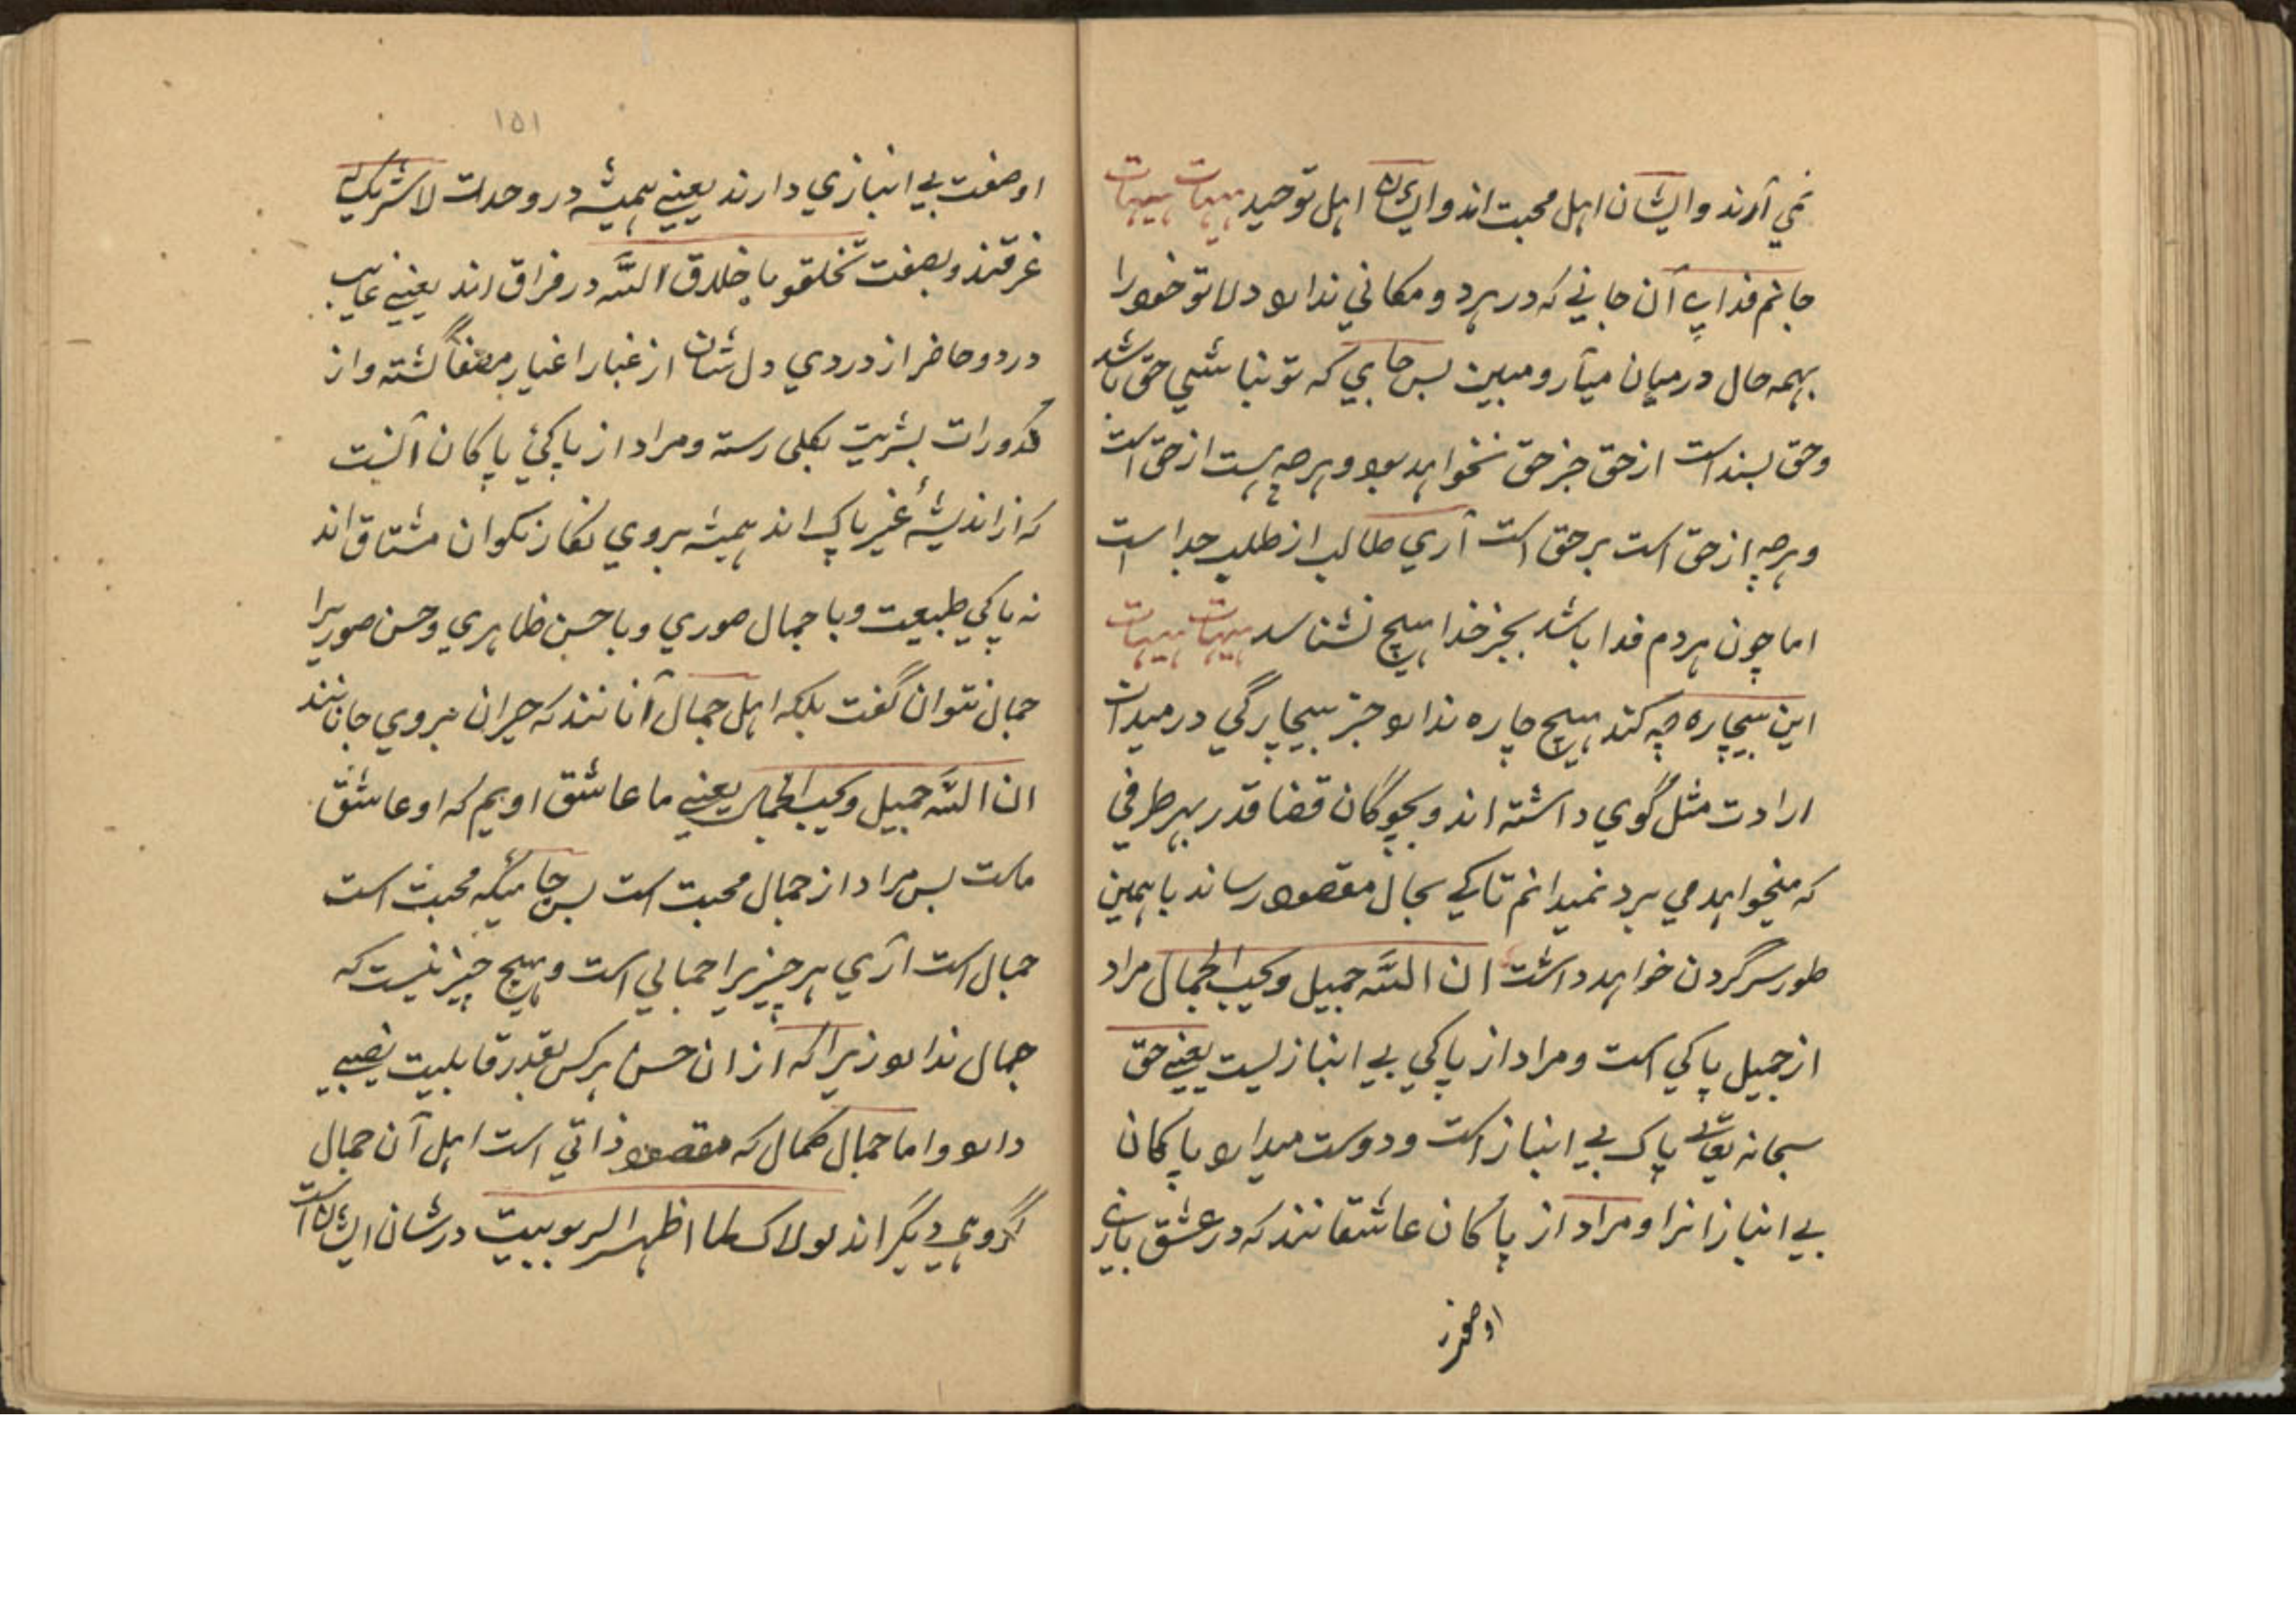 نمی آرند و ایشان اهل محبت اند و ایشان اهل توحید هیهات هیهات
جانم فدای آن جانی که در هر دو مکانی ندارد دلا تو خود را
بهمه حال در میان میآر و مبین بس جایی که تو نباشی حق باشد
و حق بسند است از حق جز حق نخواهد بود و هرچه هست از حق است
و هرچه از حق است بر حق است آری طالب از طلب جدا است
اما چون هر دم فدا باشد بجز خدا هیچ نشناسد هیهات هیهات
این بیچاره چه کند هیچ چاره ندارد جز بیچارگی در میدان
ارادت مثل گوی داشته اند و بچوگان قضا قدر بهر طرفی
که میخواهد می برد نمیدانم تا کی بحال مقصود رساند یا همین
طور سرگردن خواهد داشت ان الله جمیل و یحب الجمال مراد
از جمیل پاکی است و مراد از پاکی بی انبازیست یعنی حق
سبحانه تعالی پاک بی انباز است و دوست میدارد پاکان
بی انبازانرا و مراد از پاکان عاشقانند که در عشق بازی
او صفت
۱۵۱
او صفت بی انبازی دارند یعنی همیشه در وحدت لا شریک له
غرقند و بصفت تخلقو باخلاق الله در فراق اند یعنی غایب
در دو حاضر از دردی دل شان از غبار اغیار مصفا گشته و از
کدورات بشریت بکلی رسته و مراد از پاکی پاکان آنست
که از اندیشه غیر پاک اند همیشه بروی نگار نکوان مشتاق اند
نه پاکی طبیعت و با جمال صوری و با حسن ظاهری و حسن صوریرا
جمال نتوان گفت بلکه اهل جمال آنانند که حیران بروی جانانند
ان الله جمیل و یحب الجمال یعنی ما عاشق اویم که او عاشق
ماست بس مراد از جمال محبت است بس جائیکه محبت است
جمال است آری هر چیزیرا جمالی است و هیچ چیز نیست که
جمال ندارد زیرا که از ان حسن هر کس بقدر قابلیت نصیبی
دارد و اما جمال کمال که مقصود ذاتی است اهل آن جمال
گروهی دیگر اند لولاک لما اظهر الربوبیت در شان ایشان است